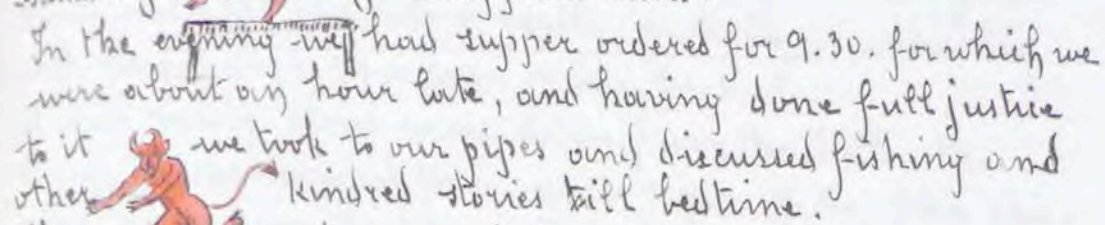 In the evening we had supper ordered for 9.30. for which we
were about an hour late, and having done full justice
to it we took to our pipes and discussed fishing and
other kindred stories till bedtime.